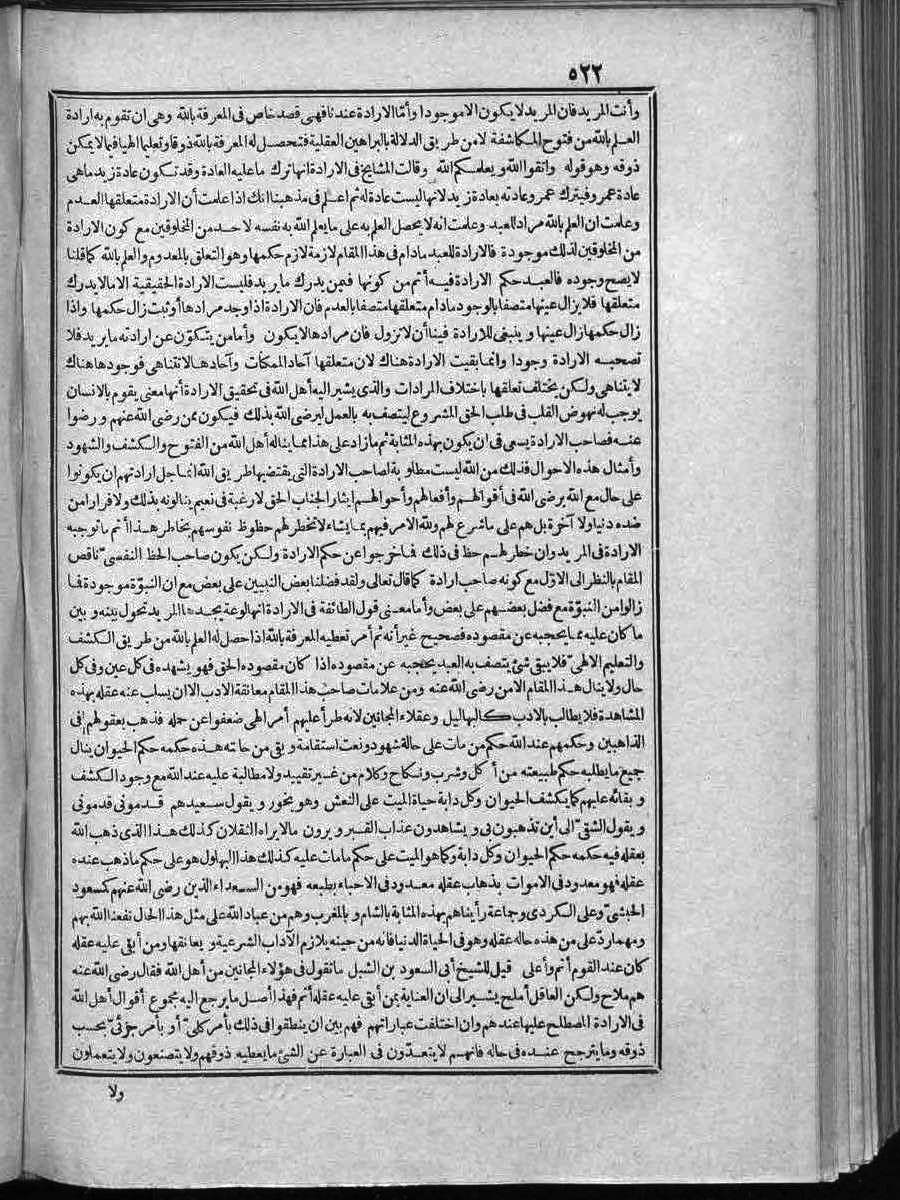 ٥٢٢
وأنت المريد فان المريد لا يكون الا موجودا وأمّا الارادة عندنا فهى قصد خاص فى المعرفة بالله وهى ان تقوم به ارادة
العلم بالله من فتوح المكاشفة لا من طريق الدلالة بالبراهين العقلية فتحصل له المعرفة بالله ذوقا وتعليما الهيا فيما لا يمكن
ذوقه وهو قوله واتقوا الله ويعلمكم الله وقالت المشايخ فى الارادة انها ترك ما عليه العادة وقد تكون عادة زيد ما هى
عادة عمرو فيترك عمرو عادته بعادة زيد لانها ليست عادة له ثم اعلم فى مذهبنا انك اذا علمت أن الارادة متعلقها العدم
وعلمت ان العلم بالله مراد للعبد وعلمت انه لا يحصل العلم به على ما يعلم الله به نفسه لاحد من المخلوقين مع كون الارادة
من المخلوقين لذلك موجودة فالارادة للعبد مادام فى هذا المقام لازمة لازم حكمها وهو التعلق بالمعدوم والعلم بالله كما قلنا
لا يصح وجوده فالعبد حكم الارادة فيه أتم من كونها فمن يدرك ما يريد فليست الارادة الحقيقية الا ما لا يدرك
متعلقها فلا يزال عينها متصفا بالوجود مادام متعلقها متصفا بالعدم فان الارادة اذا وجد مرادها أو ثبت زال حكمها واذا
زال حكمها زال عينها وينبغى للارادة فينا أن لا تزول فان مرادها لا يكون وأما من يتكوّن عن ارادته ما يريد فلا
تصحبه الارادة وجودا وانما بقيت الارادة هناك لان متعلقها آحاد الممكنات وآحادها لا تتناهى فوجودها هناك
لا يتناهى ولكن يختلف تعلقها باختلاف المرادات والذى يشير اليه أهل الله فى تحقيق الارادة أنها معنى يقوم بالانسان
يوجب له نهوض القلب فى طلب الحق المشروع ليتصف به بالعمل ليرضى الله بذلك فيكون ممن رضى الله عنهم ورضوا
عنه فصاحب الارادة يسعى فى ان يكون بهذه المثابة ثم ما زاد على هذا مما يناله أهل الله من الفتوح والكشف والشهود
وأمثال هذه الاحوال فذلك من الله ليست مطلوبة لصاحب الارادة التى يقتضيها طريق الله انما جل ارادتهم ان يكونوا
على حال مع الله يرضى الله فى أقوالهم وأفعالهم وأحوالهم ايثار الجناب الحق لا رغبة فى نعيم ينالونه بذلك ولا فرارا من
ضده دنيا ولا آخرة بل هم على ما شرع لهم ولله الامر فيهم بما يشاء لا تخطر لهم حظوظ نفوسهم بخاطر هذا أتم ما توجبه
الارادة فى المريد وان خطر لهم حظ فى ذلك فما خرجوا عن حكم الارادة ولكن يكون صاحب الحظ النفسىّ ناقص
المقام بالنظر الى الاوّل مع كونه صاحب ارادة كما قال تعالى ولقد فضلنا بعض النبيين على بعض مع ان النبوّة موجودة فما
زالوا من النبوّة مع فضل بعضهم على بعض وأما معنى قول الطائفة فى الارادة انها لوعة يجدها المريد تحول بينه وبين
ما كان عليه مما يحجبه عن مقصوده فصحيح غير أنه ثم أمر تعطيه المعرفة بالله اذا حصل له العلم بالله من طريق الكشف
والتعليم الالهىّ فلا يبقى شئ يتصف به العبد يحجبه عن مقصوده اذا كان مقصوده الحق فهو يشهده فى كل عين وفى كل
حال ولا ينال هذا المقام الا من رضى الله عنه ومن علامات صاحب هذا المقام معانقة الادب الا ان يسلب عنه عقله بهذه
المشاهدة فلا يطالب بالادب كالبهاليل وعقلاء المجانين لانه طرأ عليهم أمر الهى ضعفوا عن حمله فذهب بعقولهم فى
الذاهبين وحكمهم عند الله حكم من مات على حالة شهود ونعت استقامة وبقى من حالته هذه حكمه حكم الحيوان ينال
جميع ما يطلبه حكم طبيعته من أكل وشرب ونكاح وكلام من غير تقييد ولا مطالبة عليه عند الله مع وجود الكشف
وبقائه عليهم كما يكشف الحيوان وكل دابة حياة الميت على النعش وهو يخور ويقول سعيدهم قدمونى قدمونى
ويقول الشقىّ الى أين تذهبون بى ويشاهدون عذاب القبر ويرون ما لا يراه الثقلان كذلك هذا الذى ذهب الله
بعقله فيه حكمه حكم الحيوان وكل دابة وكما هو الميت على حكم ما مات عليه كذلك هذا البهلول هو على حكم ما ذهب عنده
عقله فهو معدود فى الاموات بذهاب عقله معدود فى الاحياء بطبعه فهو من السعداء الذين رضى الله عنهم كمسعود
الحبشىّ وعلى الكردى وجماعة رأيناهم بهذه المثابة بالشام وبالمغرب وهم من عباد الله على مثل هذا الحال نفعنا الله بهم
ومهما ردّ على من هذه حاله عقله وهو فى الحياة الدنيا فانه من حينه يلازم الآداب الشرعية ويعانقها ومن أبقى عليه عقله
كان عند القوم أتم وأعلى قيل للشيخ أبى السعود بن الشبل ما تقول فى هؤلاء المجانين من أهل الله فقال رضى الله عنه
هم ملاح ولكن العاقل أملح يشير الى ان العناية بمن أبقى عليه عقله أتم فهذا أصل ما يرجع اليه مجموع أقوال أهل الله
فى الارادة المصطلح عليها عندهم وان اختلفت عباراتهم فهم بين ان ينطقوا فى ذلك بأمر كلىّ أو بأمر جزئىّ بحسب
ذوقه وما يترجح عنده فى حاله فانهم لا يتعدّون فى العبارة عن الشئ ما يعطيه ذوقهم ولا يتصنعون ولا يتعملون
ولا